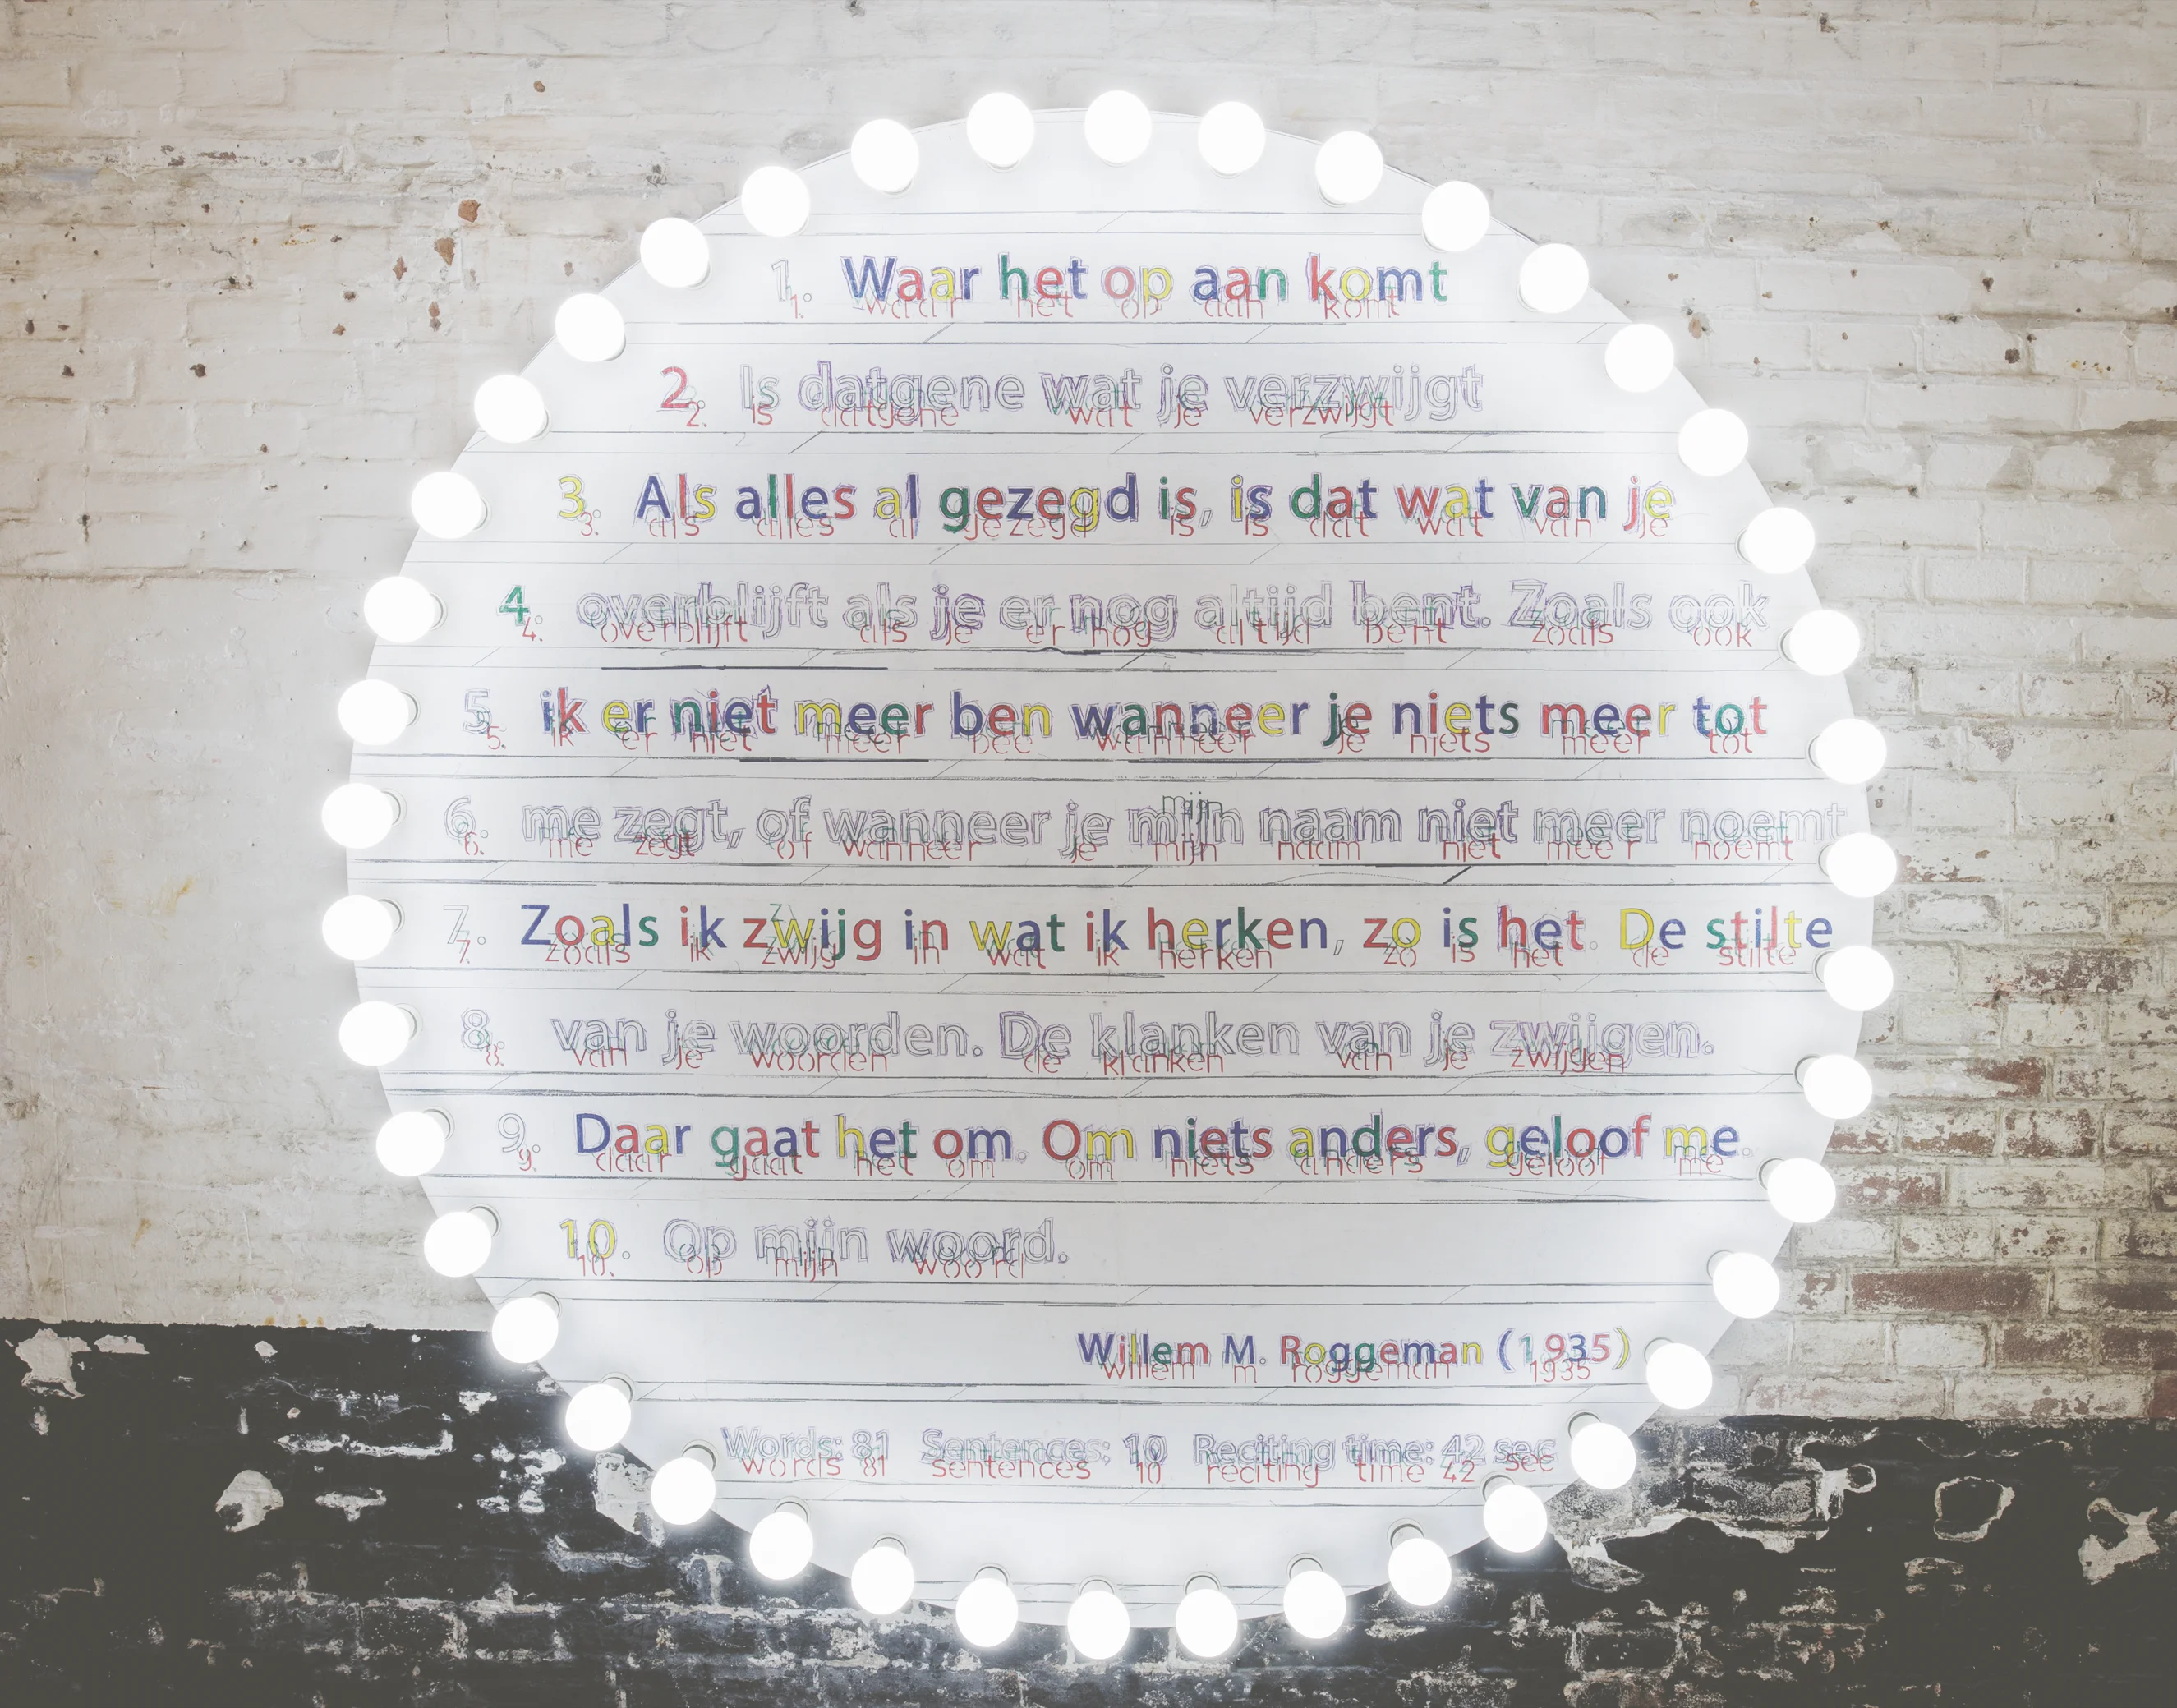 1. Waar het op aan komt
1. waar het op aan komt
2. Is datgene wat je verzwijgt
2. is datgene wat je verzwijgt
3. Als alles al gezegd is, is dat wat van je
3. als alles al gezegd is is dat wat van je
4. overblijft als je er nog altijd bent. Zoals ook
4. overblijft als je er nog altijd bent zoals ook
5. ik er niet meer ben wanneer je niets meer tot
5. ik er niet meer bee wanneer je niets meer tot
6. me zegt, of wanneer je mijn naam niet meer noemt
6. me zegt of wanneer je mijn naam niet meer noemt
7. Zoals ik zwijg in wat ik herken, zo is het. De stilte
7. zoals ik zwijg in wat ik herken zo is het de stilte
8. van je woorden. De klanken van je zwijgen.
8. van je woorden de klanken van je zwijgen
9. Daar gaat het om. Om niets anders, geloof me.
9. daar gaat het om om niets anders geloof me
10. Op mijn woord.
10. op mijn woord
Willem M. Roggeman (1935)
willem m roggeman 1935
Words: 81 Sentences: 10 Reciting time: 42 sec
words 81 sentences 10 reciting time 42 sec